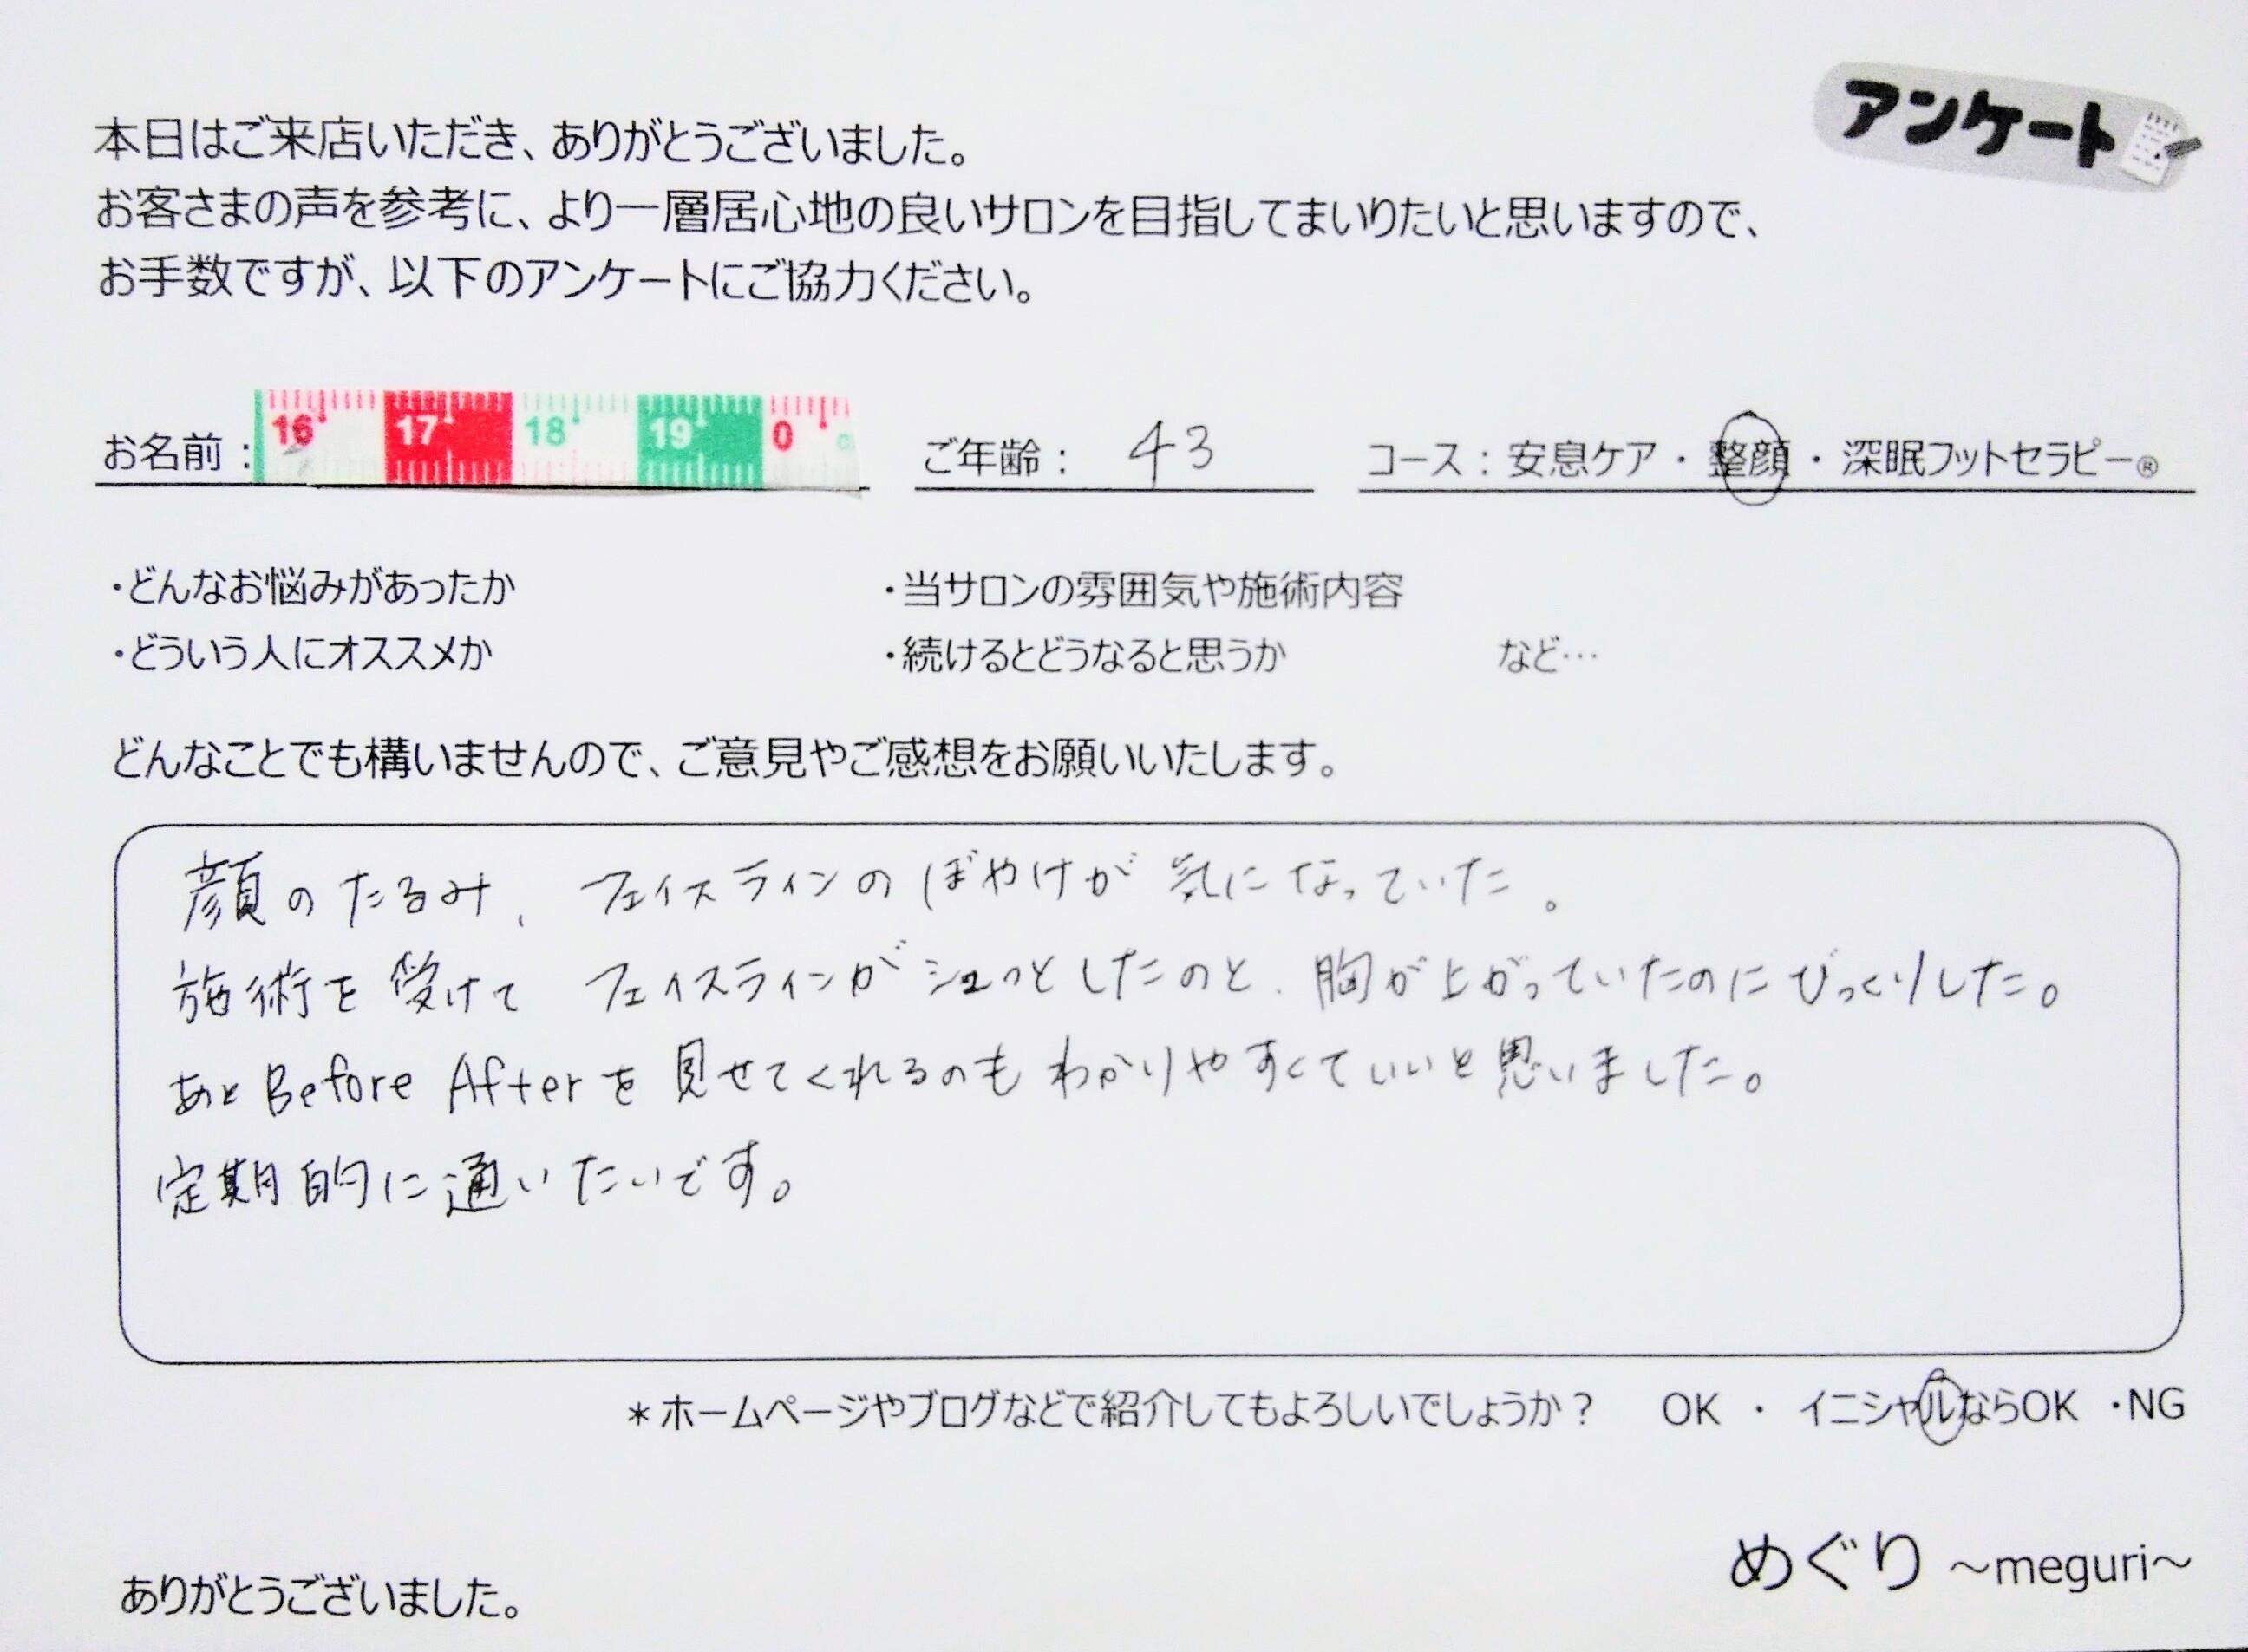 アンケート
本日はご来店いただき、ありがとうございました。
お客さまの声を参考に、より一層居心地の良いサロンを目指してまいりたいと思いますので、
お手数ですが、以下のアンケートにご協力ください。
お名前： 16 17 18 19 0 ご年齢： 43 コース：安息ケア・整顔・深眠フットセラピー®
・どんなお悩みがあったか ・当サロンの雰囲気や施術内容
・どういう人にオススメか ・続けるとどうなると思うか など…
どんなことでも構いませんので、ご意見やご感想をお願いいたします。
顔のたるみ、フェイスラインのぼやけが気になっていた。
施術を受けてフェイスラインがシュっとしたのと、胸が上がっていたのにびっくりした。
あとBefore Afterを見せてくれるのもわかりやすくていいと思いました。
定期的に通いたいです。
＊ホームページやブログなどで紹介してもよろしいでしょうか？ OK ・ イニシャルならOK ・NG
めぐり ～meguri～
ありがとうございました。